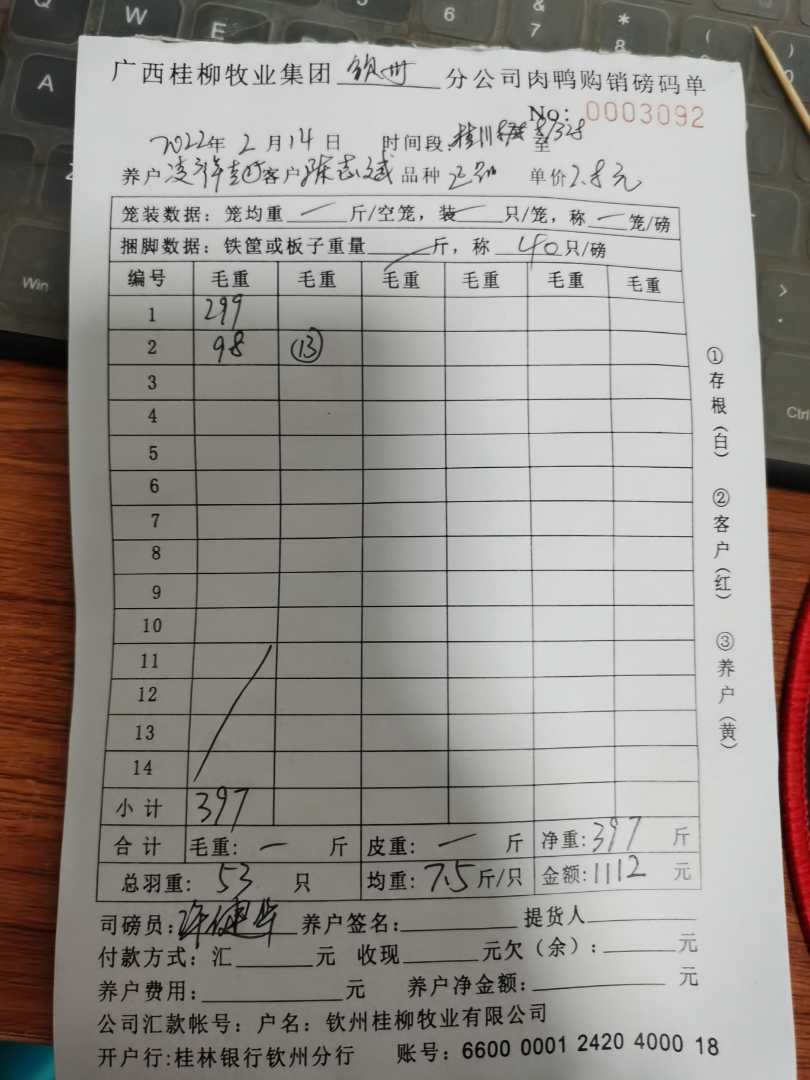 广西桂柳牧业集团 钦州 分公司肉鸭购销磅码单
No: 0003092
2022年 2月 14日 时间段: 至
养户 凌 客户 陈志斌 品种 正 单价 2.8元
笼装数据: 笼均重 一 斤/空笼, 装 一 只/笼, 称 一 笼/磅
捆脚数据: 铁筐或板子重量 一 斤, 称 40 只/磅
编号 毛重 毛重 毛重 毛重 毛重 毛重
1 299
2 98 ⑬
3
4
5
6
7
8
9
10
11
12
13
14
小计 397
合计 毛重: 一 斤 皮重: 一 斤 净重: 397 斤
总羽重: 53 只 均重: 7.5 斤/只 金额: 1112 元
司磅员: 许健华 养户签名: 提货人
付款方式: 汇 元 收现 元欠(余): 元
养户费用: 元 养户净金额: 元
公司汇款帐号: 户名: 钦州桂柳牧业有限公司
开户行:桂林银行钦州分行 账号: 6600 0001 2420 4000 18
①存根(白) ②客户(红) ③养户(黄)
Q
W
E
A
Win
6
&
7
*
8
(
Ctrl